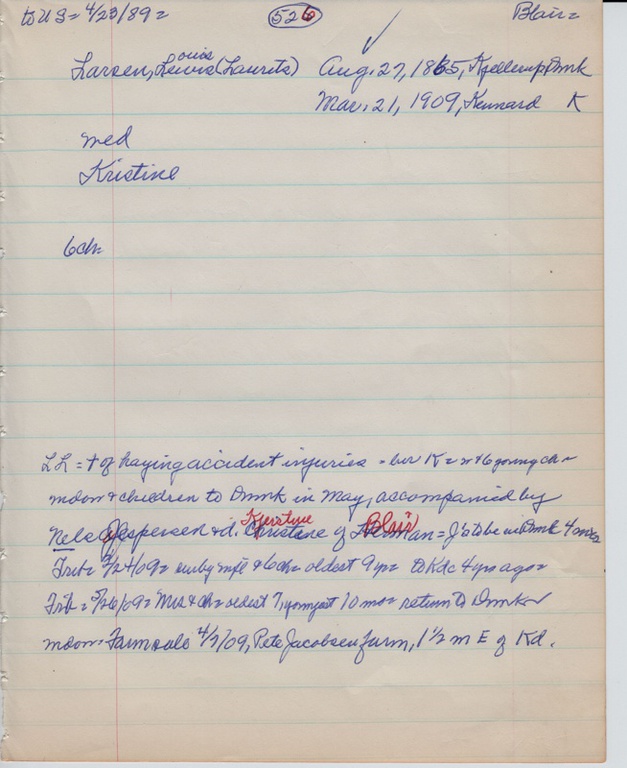 to US = 4/23/89 = 526 Blair =
Larsen, Lewis ouis (Laurits) Aug. 27, 1865, Kjellerup, Dmk
Mar. 21, 1909, Kennard K
med
Kristine
6 ch =
LL = + of haying accident injuries = bur K = w + 6 young ch =
mdow + children to Dmnk in May, accompanied by
Nels Jespersen + d. Christine Kjerstine of Herman Blair = J's to be in Dmk 4 mos
Trib = 3/24/09 = sur by wife + 6 ch = oldest 9 yr = to Kdc 4 yrs ago =
Trib = 5/26/09 = Mrs + ch = oldest 7, youngest 10 mo = return to Dmk =
mdow = Farm sale 4/7/09, Pete Jacobsen farm, 1 1/2 m E of Kd.